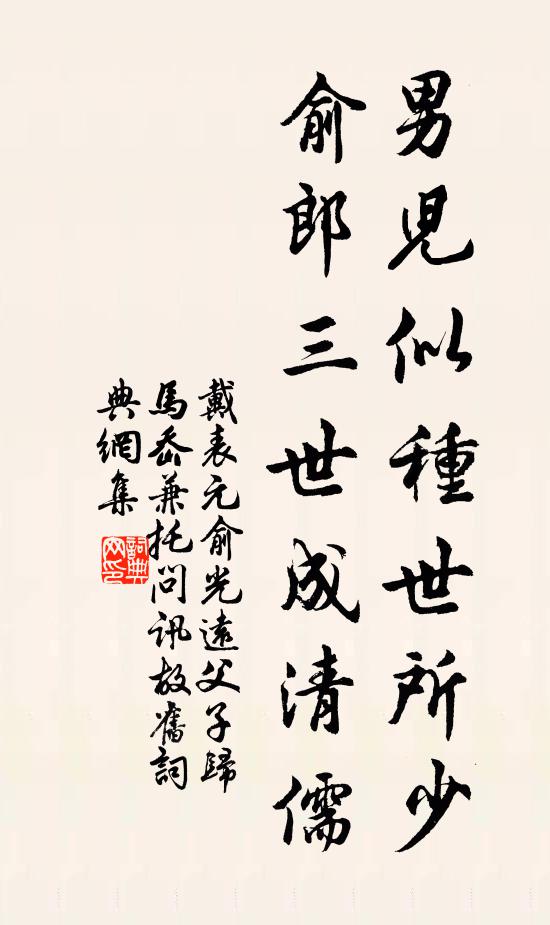 男兒似種世所少
俞郎三世成清儒
戴表元俞光遠父子歸
馬岙兼托問訊故舊詞
典網集
詞典網印